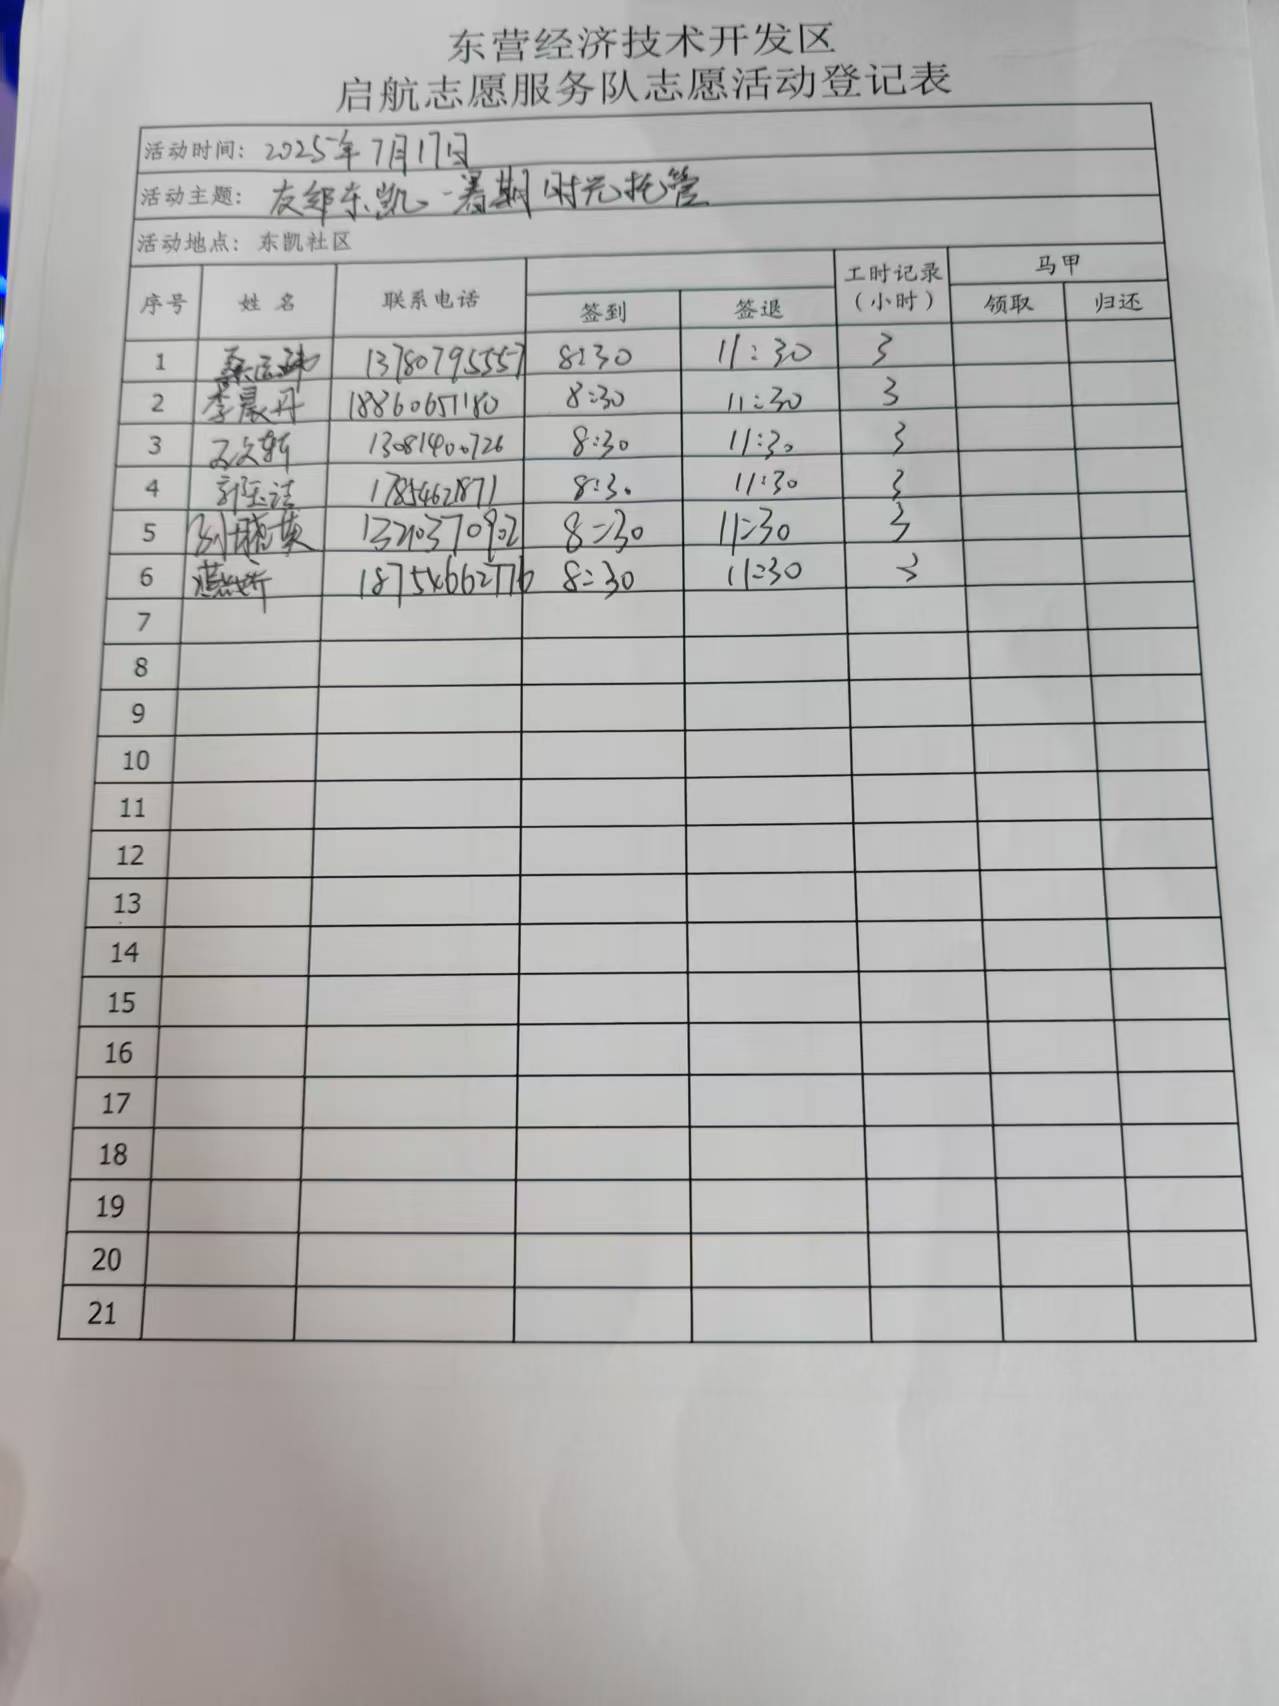 东营经济技术开发区
启航志愿服务队志愿活动登记表
活动时间: 2025年7月17日
活动主题: 友邻东凯—暑期时光托管
活动地点: 东凯社区
序号 姓名 联系电话 签到 签退 工时记录(小时) 马甲 领取 归还
1 13780795557 8:30 11:30 3
2 李晨丹 18860651180 8:30 11:30 3
3 13081400726 8:30 11:30 3
4 郭玉洁 17854621871 8:30 11:30 3
5 刘晓英 13210370902 8:30 11:30 3
6 18754662776 8:30 11:30 3
7
8
9
10
11
12
13
14
15
16
17
18
19
20
21